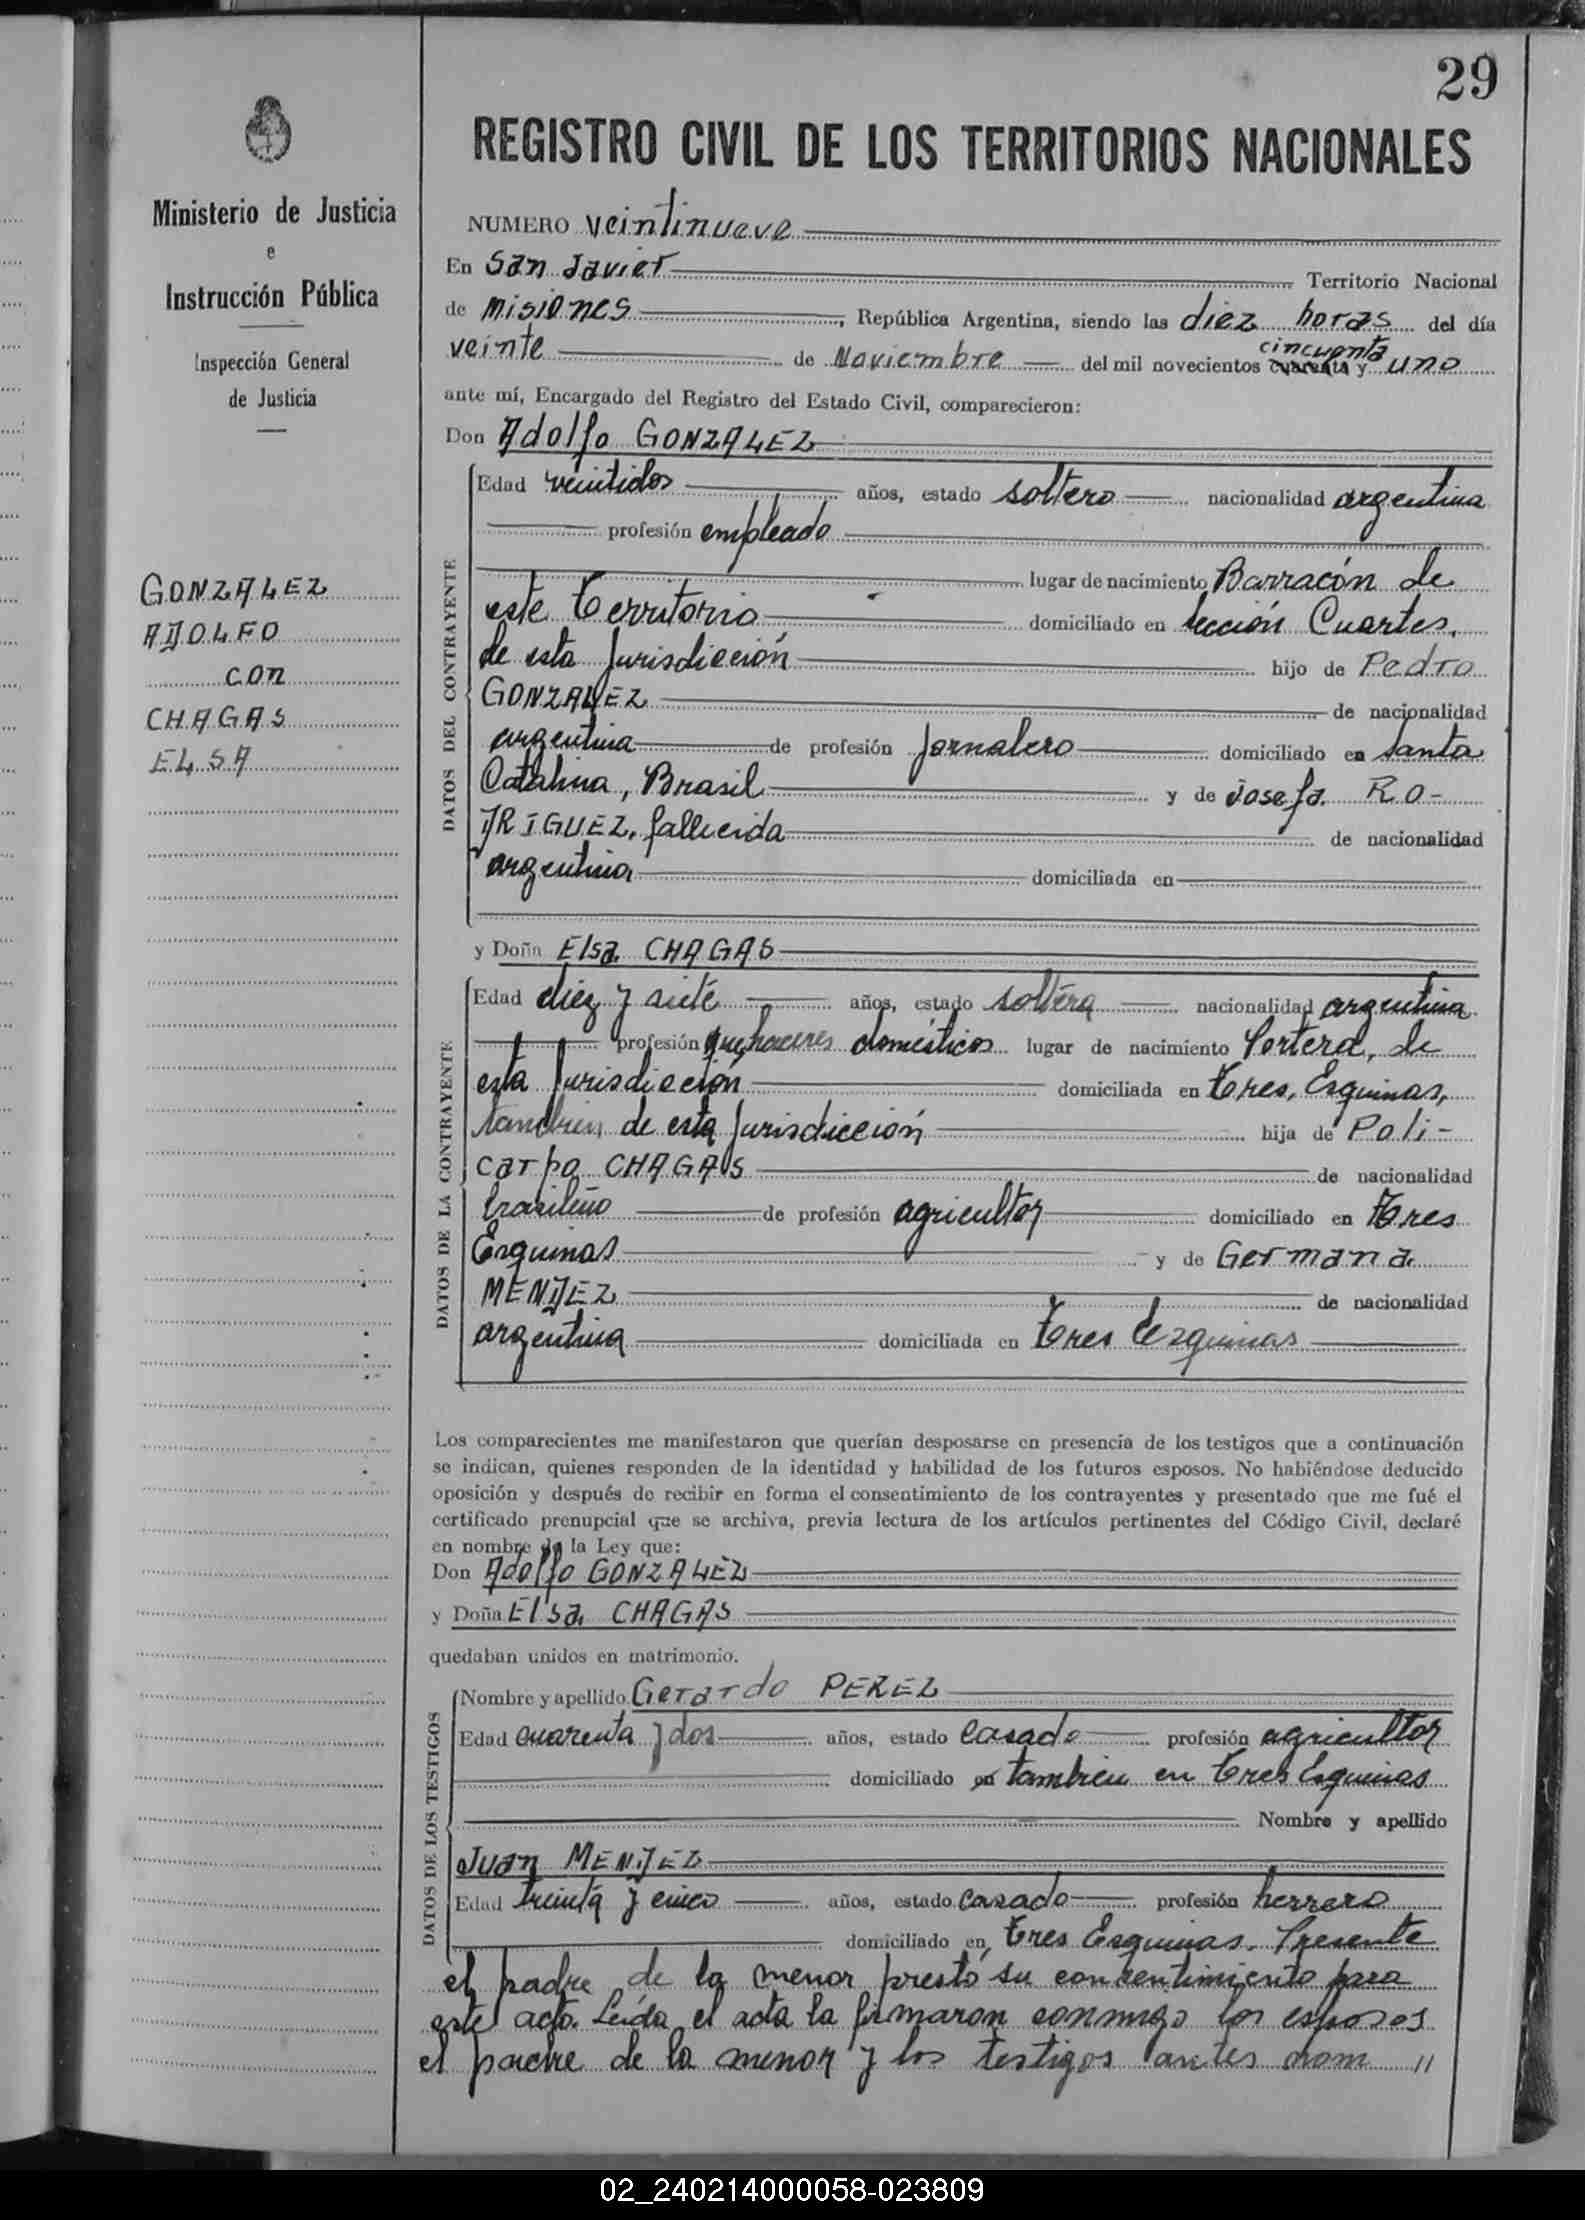 29
REGISTRO CIVIL DE LOS TERRITORIOS NACIONALES
Ministerio de Justicia
e
Instrucción Pública
Inspección General
de Justicia
GONZALEZ
ADOLFO
con
CHAGAS
ELSA
NUMERO veintinueve
En San Javier Territorio Nacional
de Misiones, República Argentina, siendo las diez horas del día
veinte de Noviembre del mil novecientos cuarenta y cincuenta uno
ante mí, Encargado del Registro del Estado Civil, comparecieron:
Don Adolfo GONZALEZ
DATOS DEL CONTRAYENTE
Edad veintidos años, estado soltero nacionalidad argentina
profesión empleado
lugar de nacimiento Barracón de
este territorio domiciliado en sección Cuartes,
de esta Jurisdicción hijo de Pedro
GONZALEZ de nacionalidad
argentina de profesión jornalero domiciliado en Santa
Catalina, Brasil y de Josefa RO-
DRIGUEZ, fallecida de nacionalidad
argentina domiciliada en
y Doña Elsa CHAGAS
DATOS DE LA CONTRAYENTE
Edad diez y siete años, estado soltera nacionalidad argentina
profesión quehaceres domésticos lugar de nacimiento Portera, de
esta Jurisdicción domiciliada en Tres Esquinas,
tambien de esta Jurisdicción hija de Poli-
carpo CHAGAS de nacionalidad
brasileño de profesión agricultor domiciliado en Tres
Esquinas y de Germana
MENDEZ de nacionalidad
argentina domiciliada en Tres Esquinas
Los comparecientes me manifestaron que querían desposarse en presencia de los testigos que a continuación
se indican, quienes responden de la identidad y habilidad de los futuros esposos. No habiéndose deducido
oposición y después de recibir en forma el consentimiento de los contrayentes y presentado que me fué el
certificado prenupcial que se archiva, previa lectura de los artículos pertinentes del Código Civil, declaré
en nombre de la Ley que:
Don Adolfo GONZALEZ
y Doña Elsa CHAGAS
quedaban unidos en matrimonio.
DATOS DE LOS TESTIGOS
Nombre y apellido Gerardo PEREZ
Edad cuarenta y dos años, estado casado profesión agricultor
domiciliado en tambien en Tres Esquinas
Nombre y apellido
Juan MENDEZ
Edad treinta y cinco años, estado casado profesión herrero
domiciliado en Tres Esquinas. Presente
el padre de la menor prestó su consentimiento para
este acto. Leída el acta la firmaron conmigo los esposos
el padre de la menor y los testigos antes nom "
02_240214000058-023809